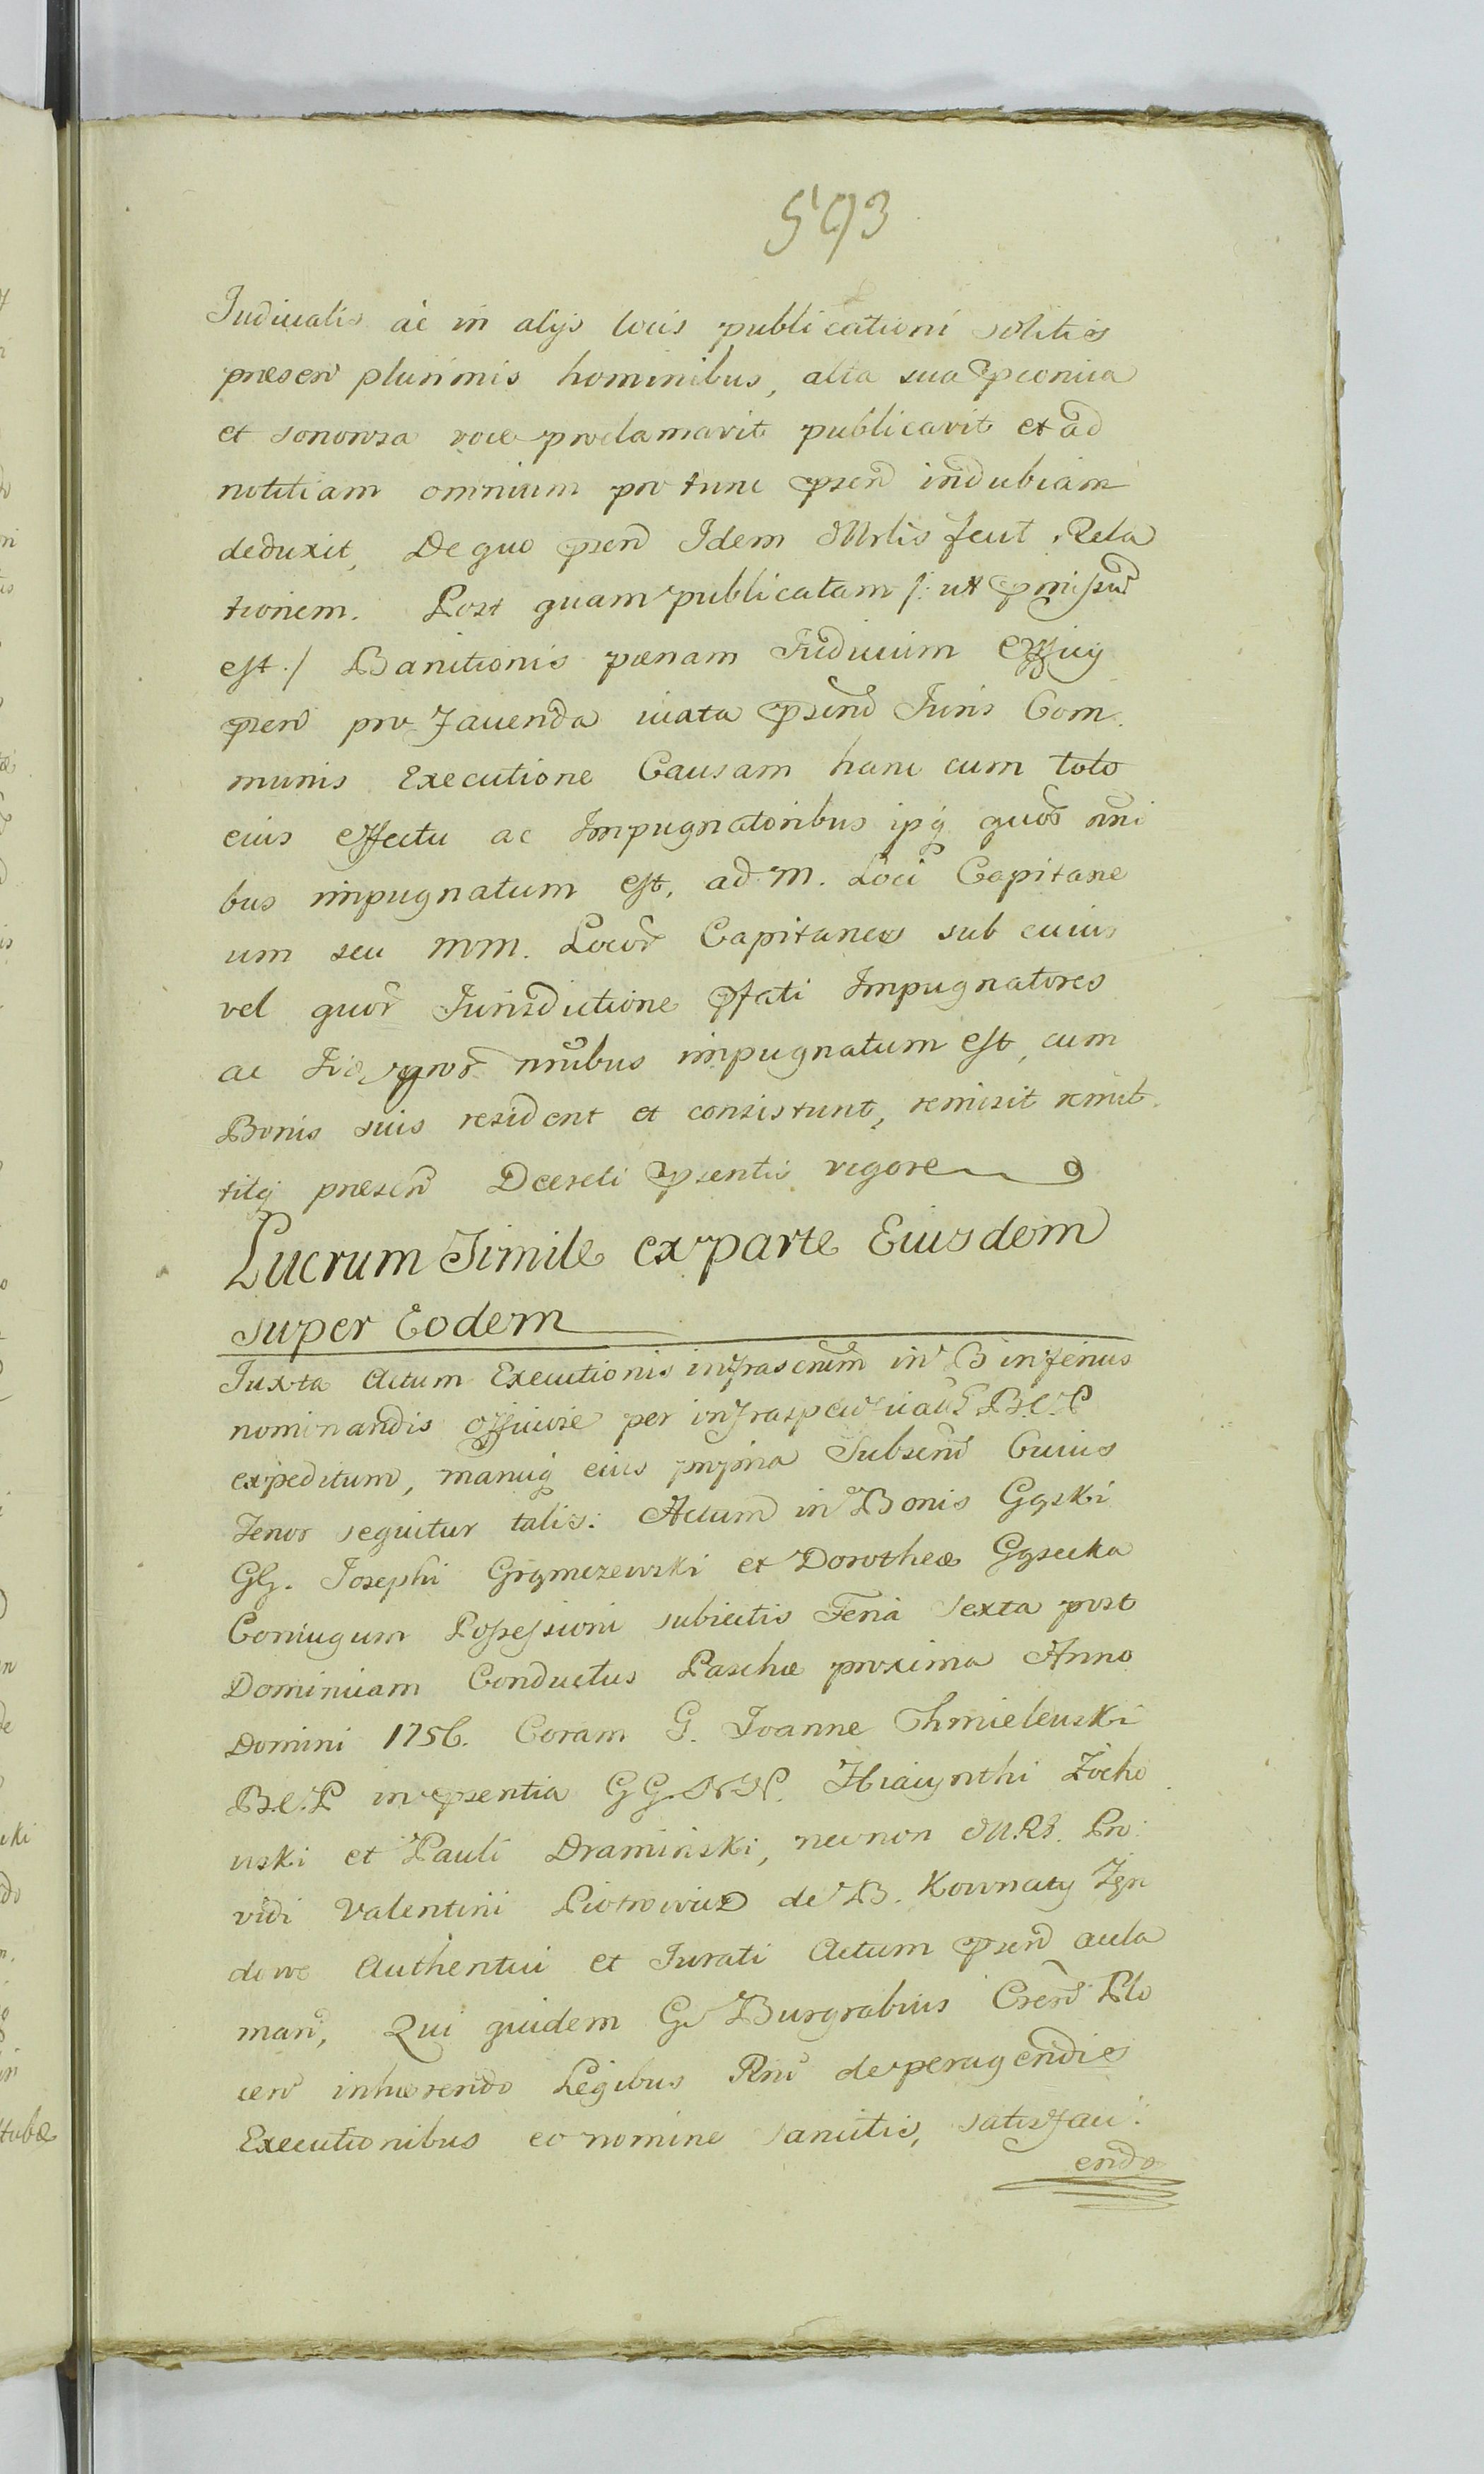 593
Judicialis ac in alijs locis publicationi solitis
præsen plurimis hominibus, alta sua pconica
et sonorosa voce proclamavit publicavit et ad
notitiam omnium pro tunc psen indubiam
deduxit, De quo psen Idem Mrlis fecit Rela
tionem. Post quam publicatam /: ut pmissu
est :/ Banitionis pænam Judicium Officij
psen pro facienda iuxta psens Juris Com
munis Executione Causam hanc cum toto
eius effectu ac Impugnatoribus ipsq quor nni
bus impugnatum est, ad M. Loci Capitane
um seu MM. Locor Capitaneos sub cuius
vel quor Jurisdictione pfati Impugnatores
ac quor nnibus impugnatum est, cum
Bonis suis resident et consistunt, remisit remit
titq præsen Decreti psentis vigore
Lucrum Simile ex parte Eiusdem
super Eodem
Juxta Actum Executionis infrascrum in B inferius
nominandis officiose per infraspecificat B.C.P
expeditum, manuq eius propria Subscru Cuius
Tenor sequitur talis: Actum in Bonis Gqski
GG. Josephi Grqmczewski et Dorotheæ Gqsecka
Coniugum Possessioni subiectis Feria Sexta post
Dominicam Conductus Paschæ proxima Anno
Domini 1756. Coram G. Joanne Chmielewski
B.C.P in psentia GG. NN. Hiacynthi Zocho
wski et Pauli Dramiński, necnon MRS. Pro
vidi Valentini Piotrowicz de B. Kownaty Zqn
dowe Authentici et Jurati Actum psen acla
man, Qui quidem G Burgrabius Cren Plo
cen inhærendo Legibus Rni de peragendis
Executionibus eo nomine sancitis, satisfaci
endo